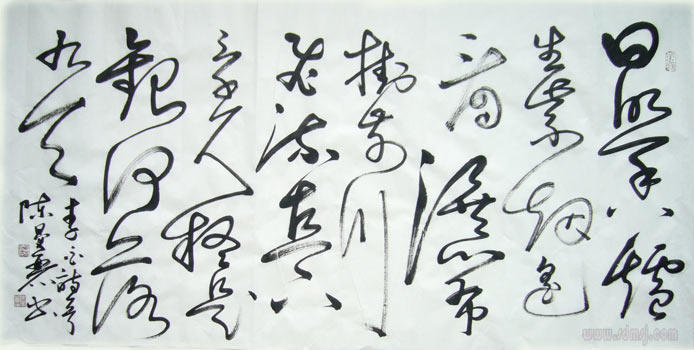 日照香爐
生紫烟遥
看瀑布
掛前川
飛流直下
三千尺疑是
銀河落
九天
李白詩
陈 书
www.sdmsj.com